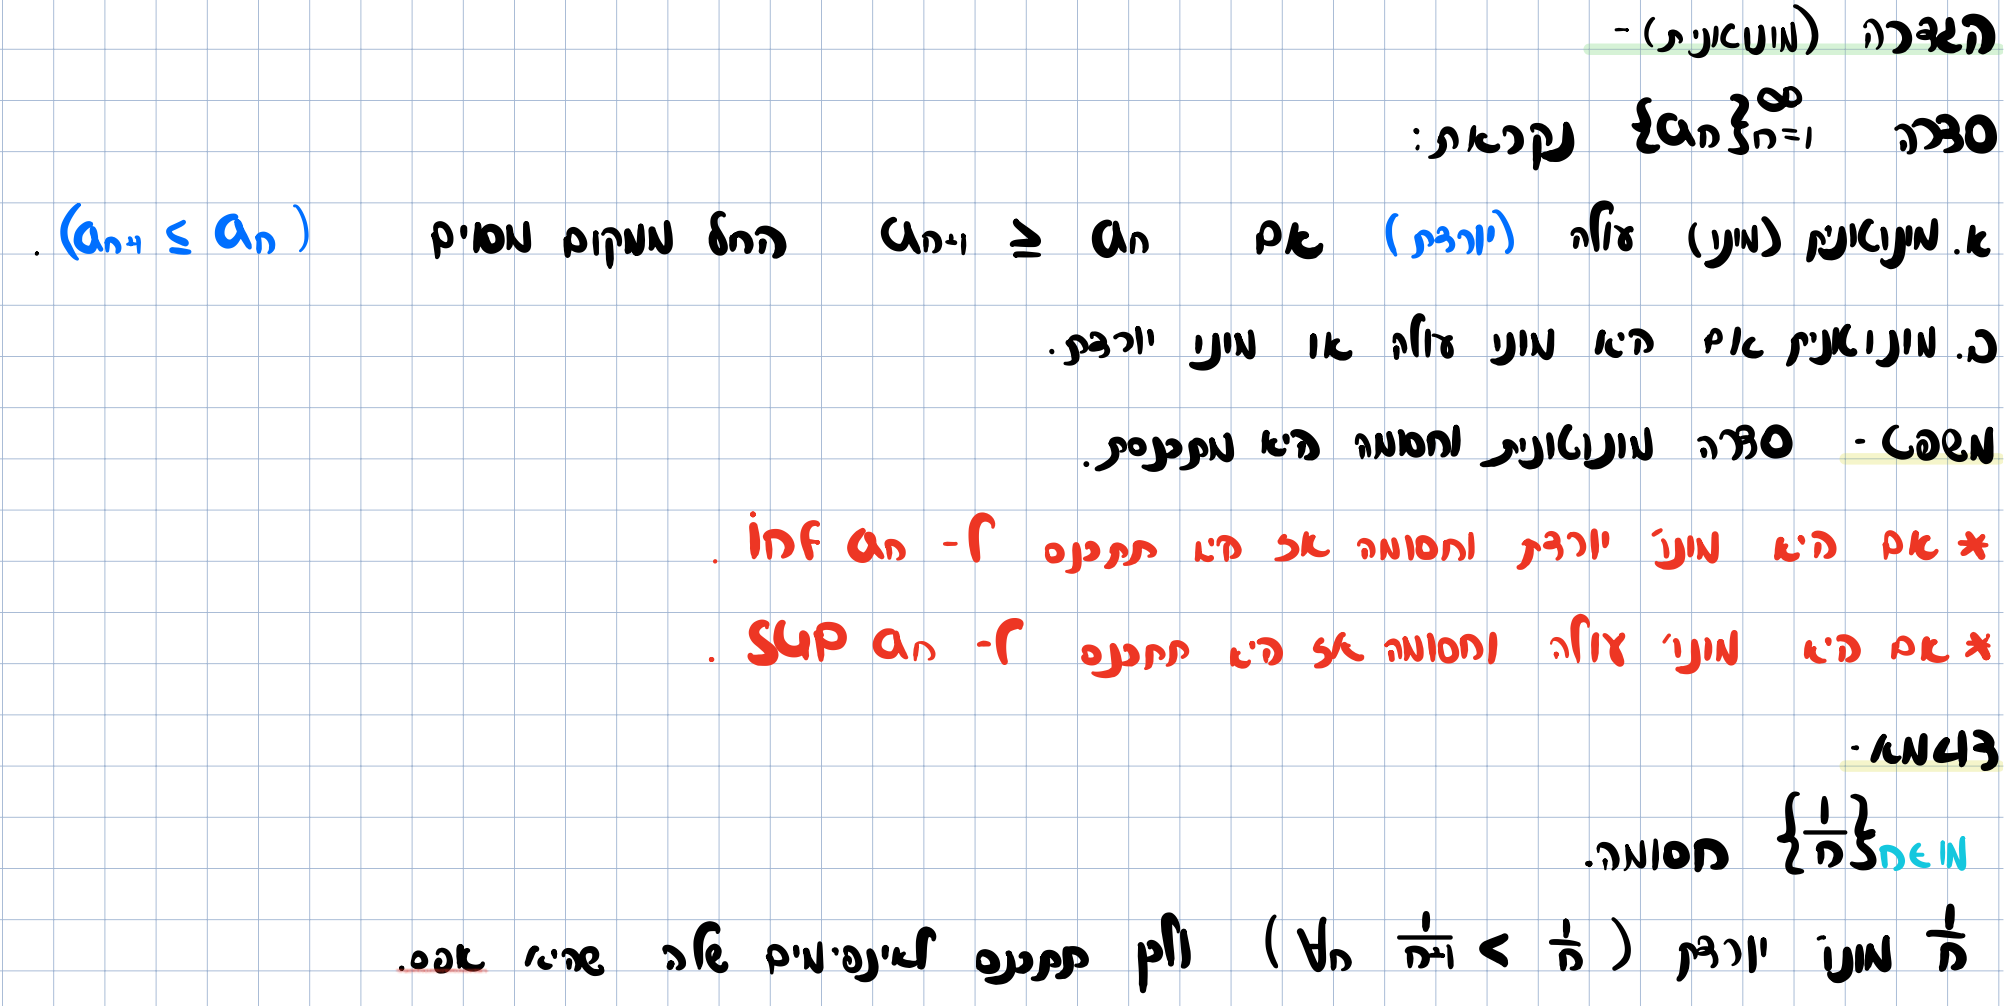 הגדרה (מונוטונית) -
סדרה {aₙ}ₙ₌₁^∞ נקראת:
א. מונוטונית (מונו') עולה (יורדת) אם aₙ₊₁ ≥ aₙ החל ממקום מסוים (aₙ₊₁ ≤ aₙ).
ב. מונוטונית אם היא מונו' עולה או מונו' יורדת.
משפט - סדרה מונוטונית וחסומה היא מתכנסת.
* אם היא מונו' יורדת וחסומה אז היא תתכנס ל- inf aₙ.
* אם היא מונו' עולה וחסומה אז היא תתכנס ל- sup aₙ.
דוגמא -
{1/n}n∈ℕ חסומה.
1/n מונו' יורדת (∀n 1/(n+1) < 1/n) ולכן תתכנס לאינפימום שלה שהיא אפס.